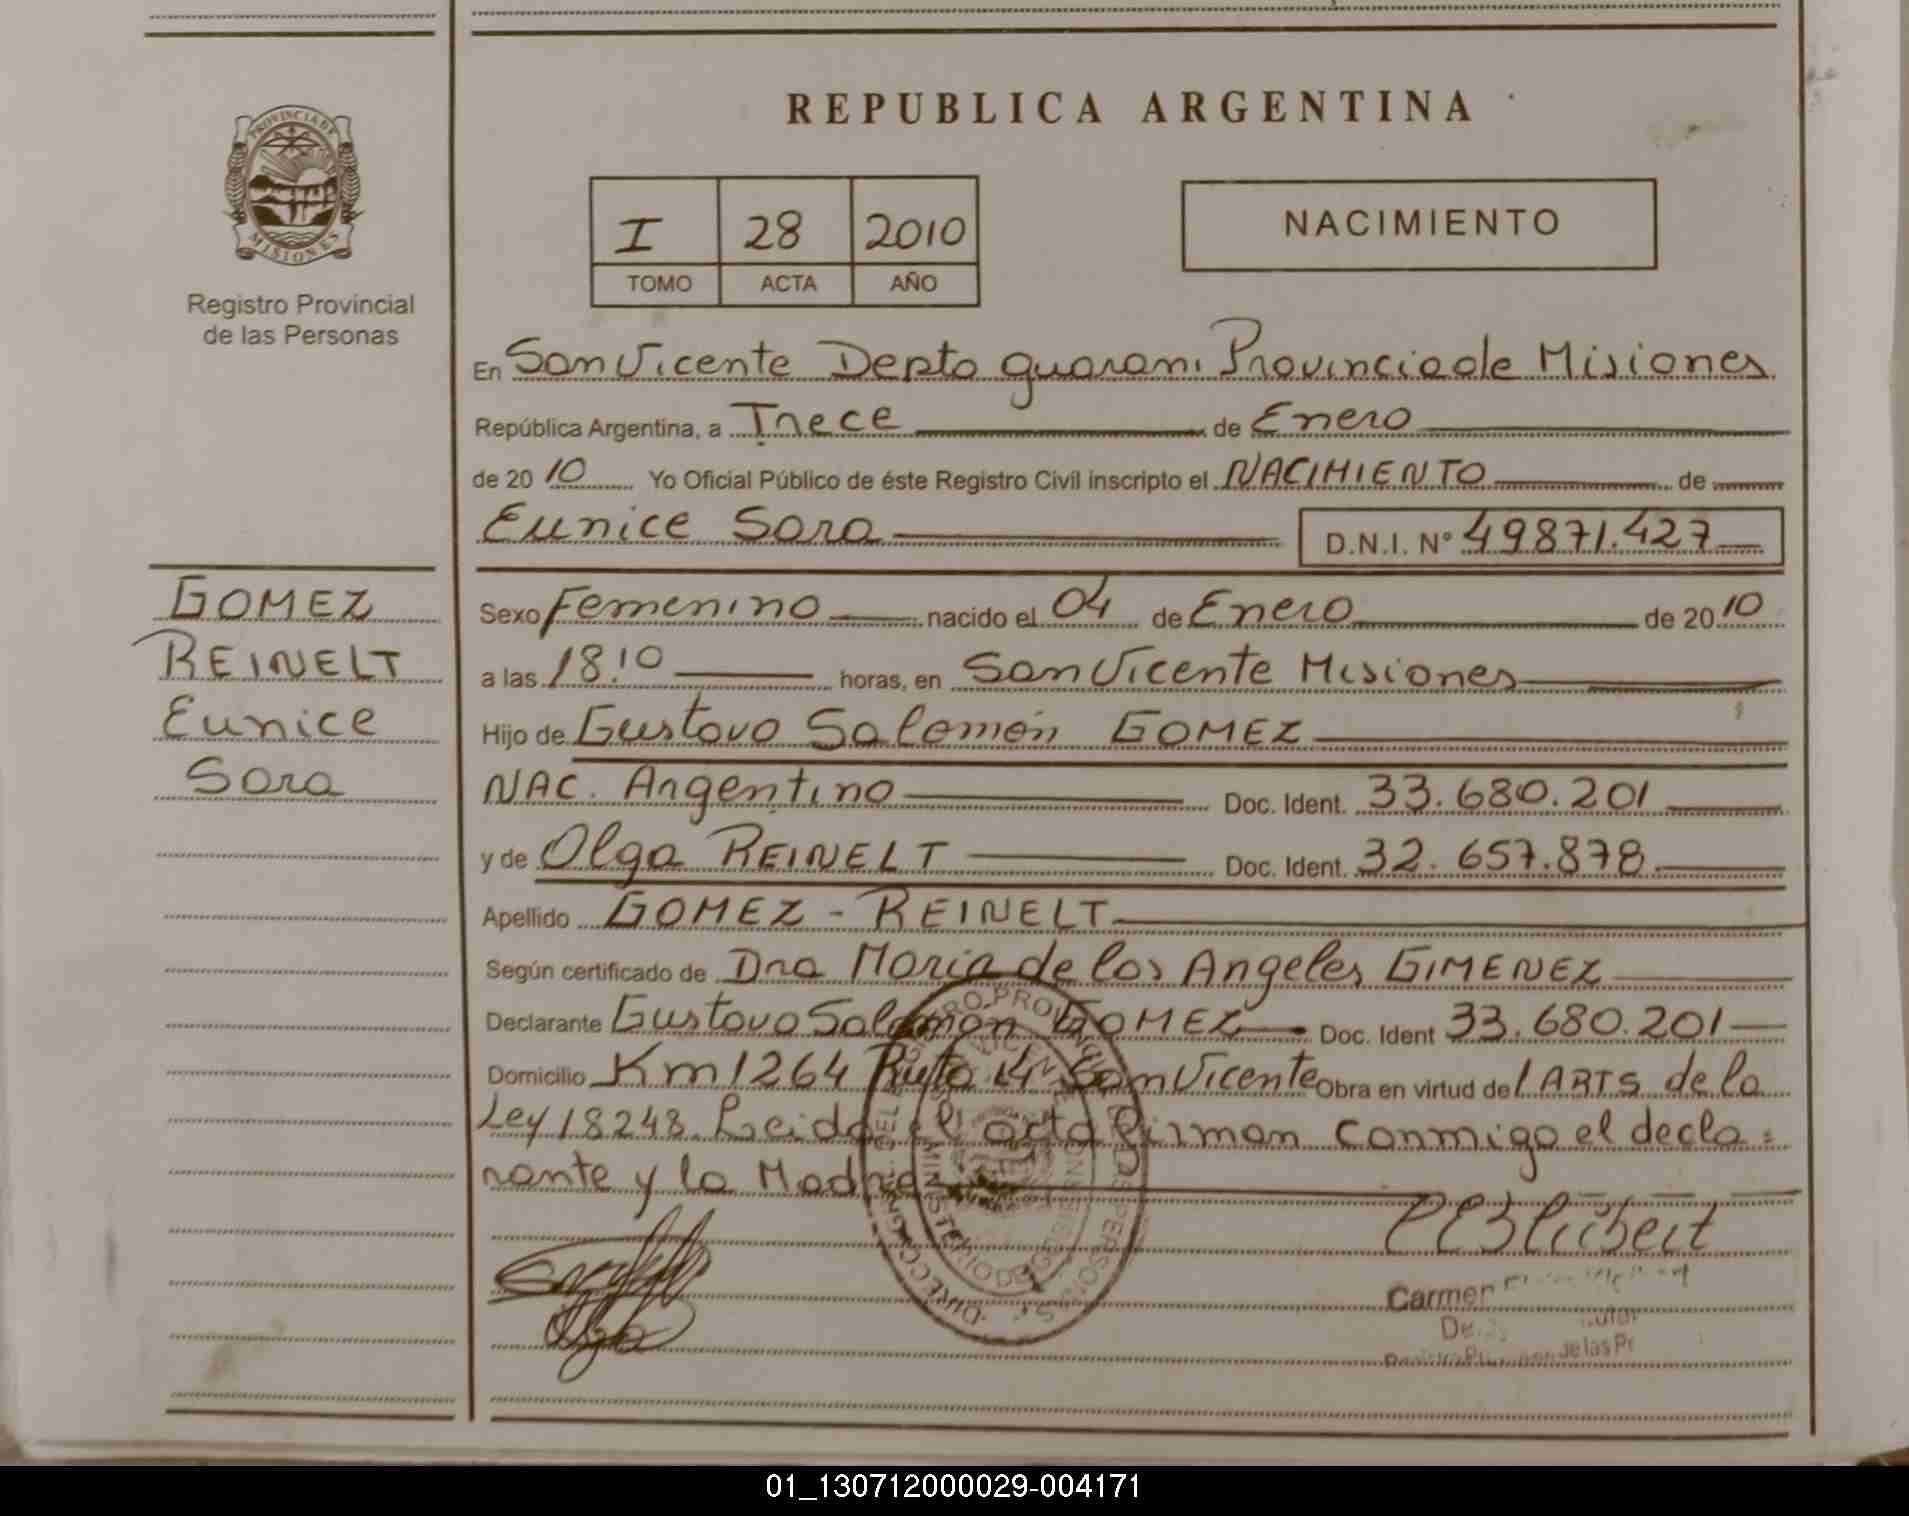 PROVINCIA DE
MISIONES
Registro Provincial
de las Personas
GOMEZ
REINELT
Eunice
Sara
REPUBLICA ARGENTINA
I 28 2010
TOMO ACTA AÑO
NACIMIENTO
En San Vicente Depto guarani Provincia de Misiones
República Argentina, a Trece de Enero
de 2010 Yo Oficial Público de éste Registro Civil inscripto el NACIMIENTO de
Eunice Sara D.N.I. N° 49871.427
Sexo Femenino nacido el 04 de Enero de 2010
a las 18.10 horas, en San Vicente Misiones
Hijo de Gustavo Salomón GOMEZ
NAC. Argentino Doc. Ident. 33.680.201
y de Olga REINELT Doc. Ident. 32.657.878
Apellido GOMEZ - REINELT
Según certificado de Dra Maria de los Angeles GIMENEZ
Declarante Gustavo Salomón GOMEZ Doc. Ident 33.680.201
Domicilio Km 1264 Ruta 14 San Vicente Obra en virtud de l ARTS de la
Ley 18248. Leida el acta firman conmigo el decla=
rante y la Madre
Carmen
de las
01_130712000029-004171